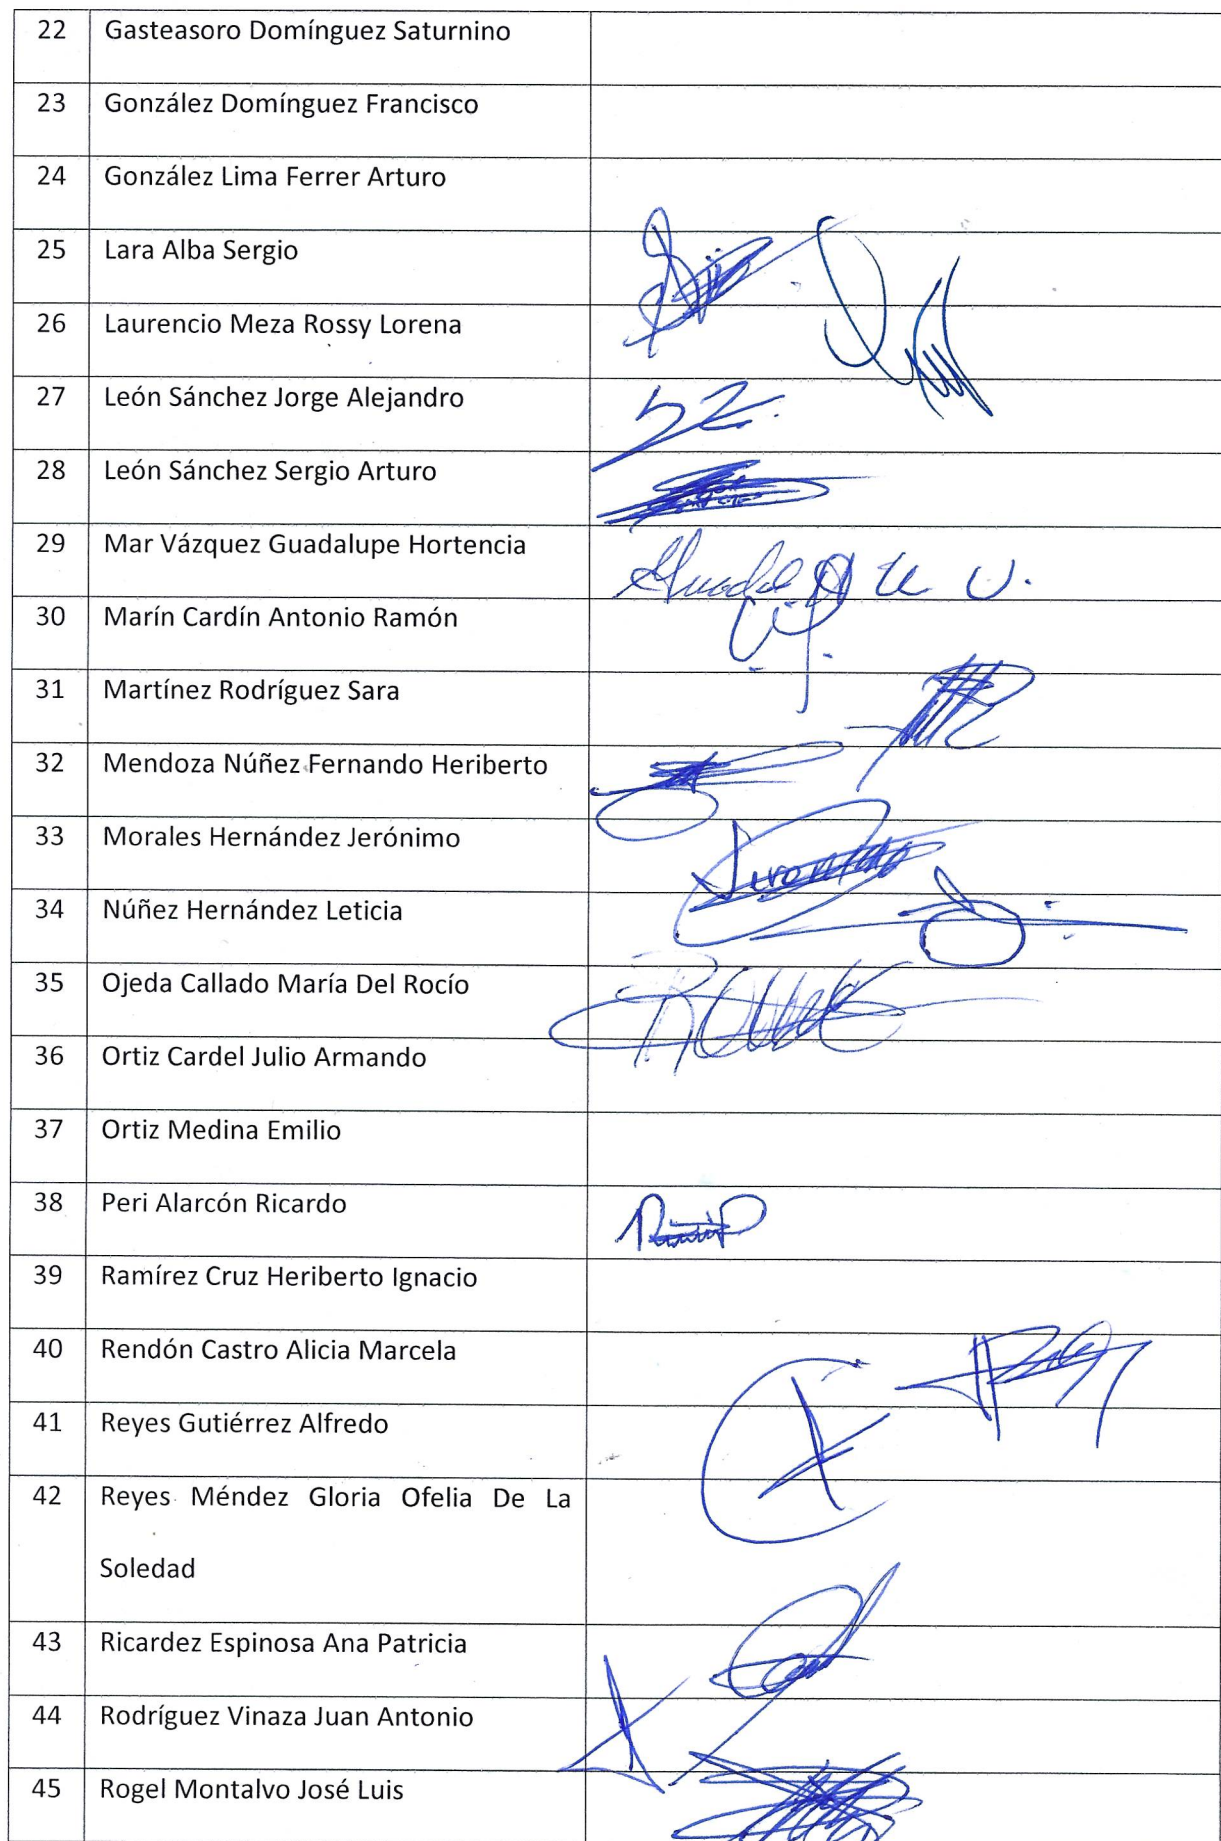 22 Gasteasoro Domínguez Saturnino
23 González Domínguez Francisco
24 González Lima Ferrer Arturo
25 Lara Alba Sergio
26 Laurencio Meza Rossy Lorena
27 León Sánchez Jorge Alejandro
28 León Sánchez Sergio Arturo
29 Mar Vázquez Guadalupe Hortencia
30 Marín Cardín Antonio Ramón
31 Martínez Rodríguez Sara
32 Mendoza Núñez Fernando Heriberto
33 Morales Hernández Jerónimo
34 Núñez Hernández Leticia
35 Ojeda Callado María Del Rocío
36 Ortiz Cardel Julio Armando
37 Ortiz Medina Emilio
38 Peri Alarcón Ricardo
39 Ramírez Cruz Heriberto Ignacio
40 Rendón Castro Alicia Marcela
41 Reyes Gutiérrez Alfredo
42 Reyes Méndez Gloria Ofelia De La
Soledad
43 Ricardez Espinosa Ana Patricia
44 Rodríguez Vinaza Juan Antonio
45 Rogel Montalvo José Luis